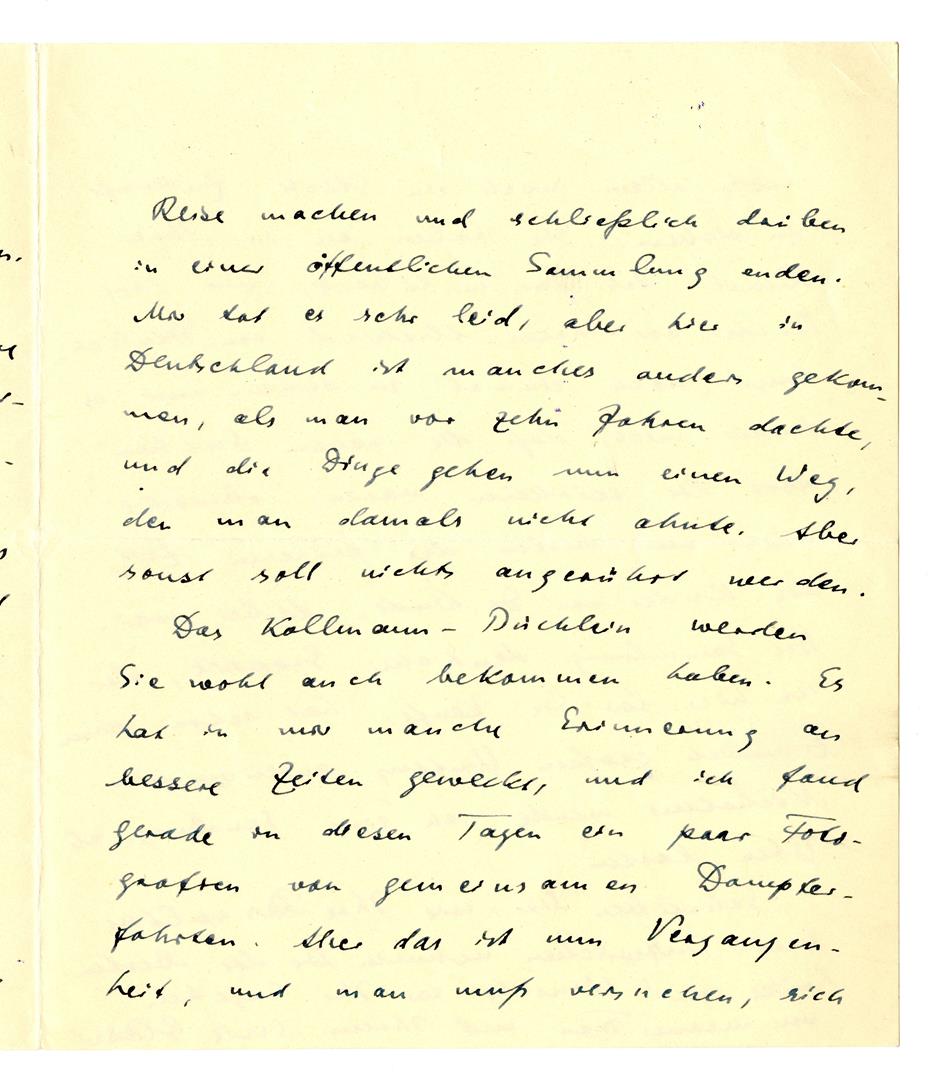 Reise machen und schließlich drüben
in einer öffentlichen Sammlung enden.
Mir tat es sehr leid, aber hier in
Deutschland ist manches anders gekom-
men, als man vor zehn Jahren dachte,
und die Dinge gehen nun einen Weg,
den man damals nicht ahnte. Aber
sonst soll nichts angerührt werden.
Das Kallmann-Büchlein werden
Sie wohl auch bekommen haben. Es
hat in mir manche Erinnerung an
bessere Zeiten geweckt, und ich fand
gerade in diesen Tagen ein paar Foto-
grafien von gemeinsamen Dampfer-
fahrten. Aber das ist nun Vergangen-
heit, und man muß versuchen, sich